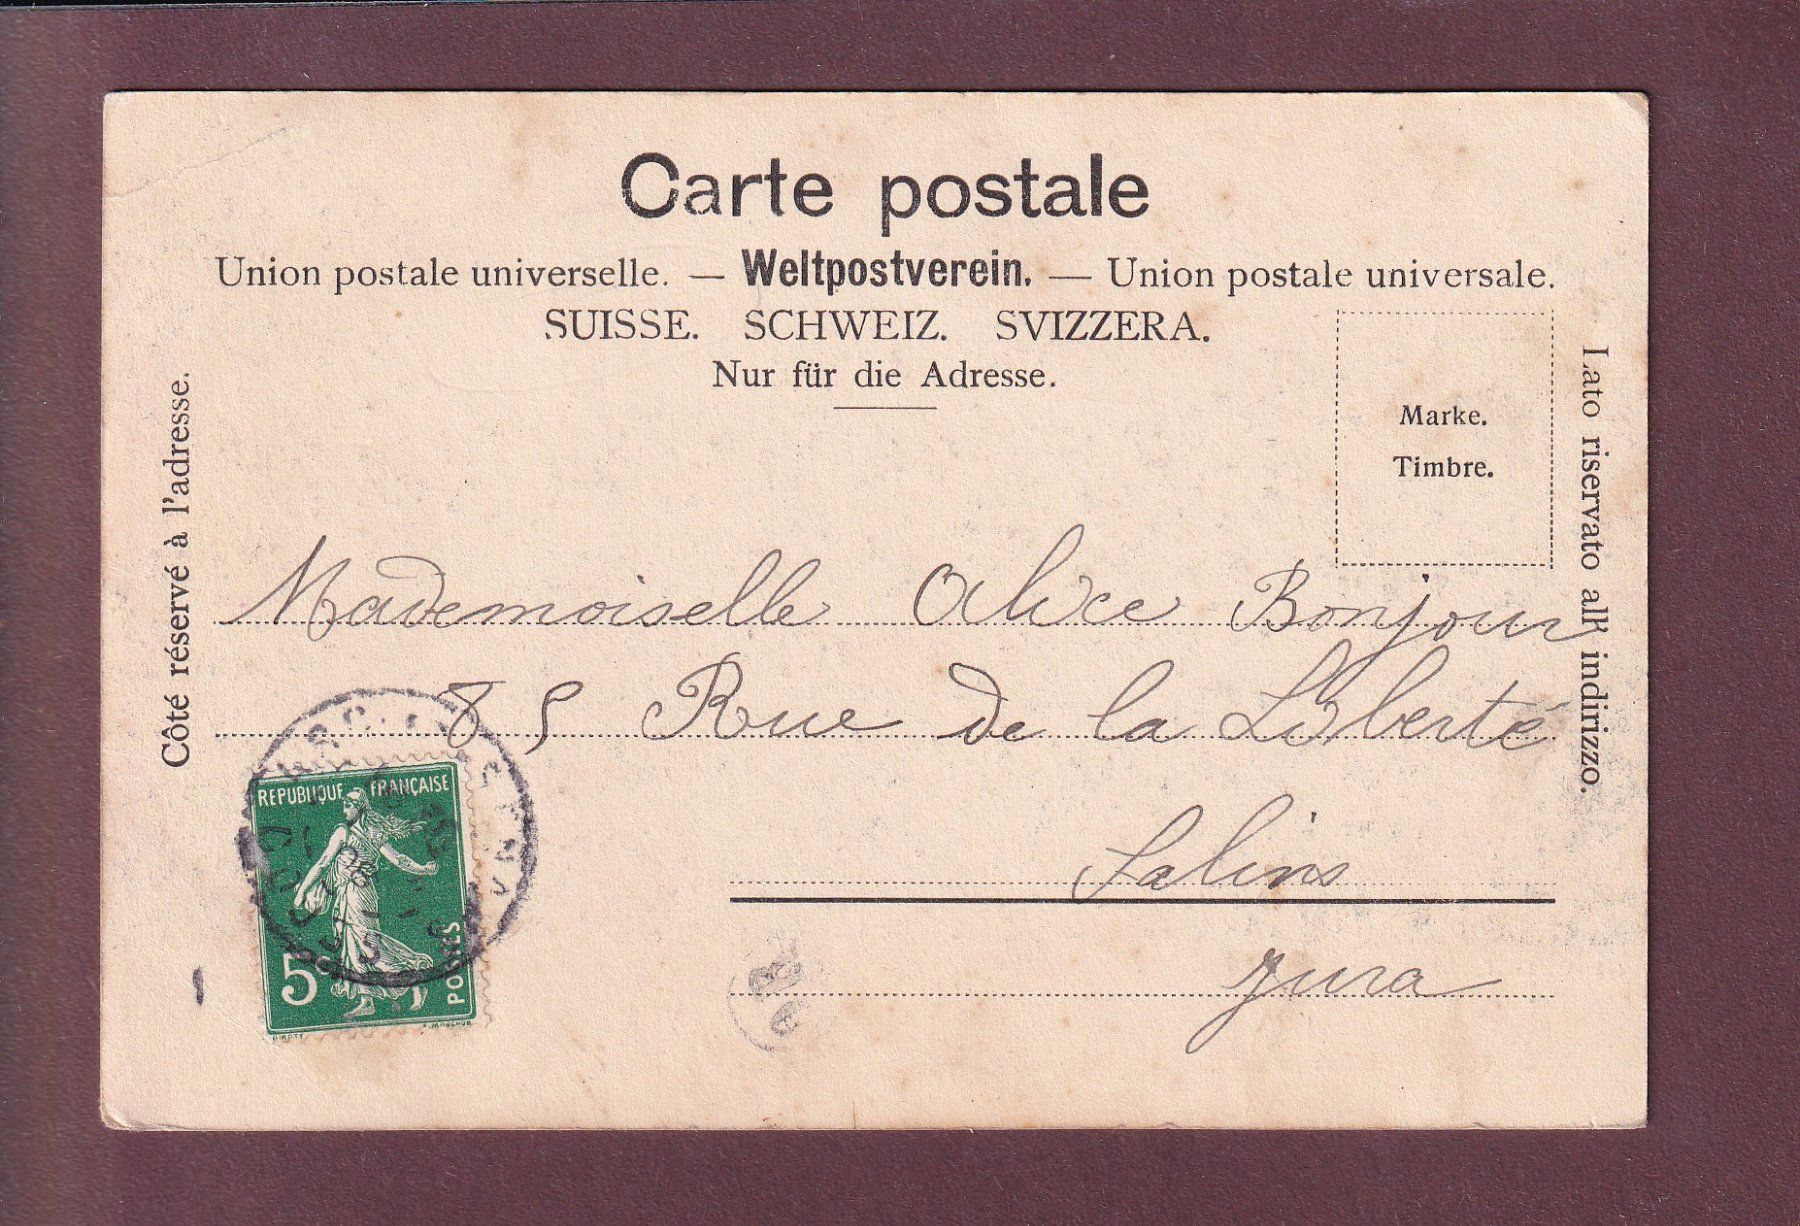 Carte postale
Union postale universelle. — Weltpostverein. — Union postale universale.
SUISSE. SCHWEIZ. SVIZZERA.
Nur für die Adresse.
Marke.
Timbre.
Côté réservé à l'adresse.
Lato riservato all' indirizzo.
Mademoiselle Alice Bonjour
85 Rue de la Liberté
Salins
Jura
REPUBLIQUE FRANÇAISE
5c
POSTES